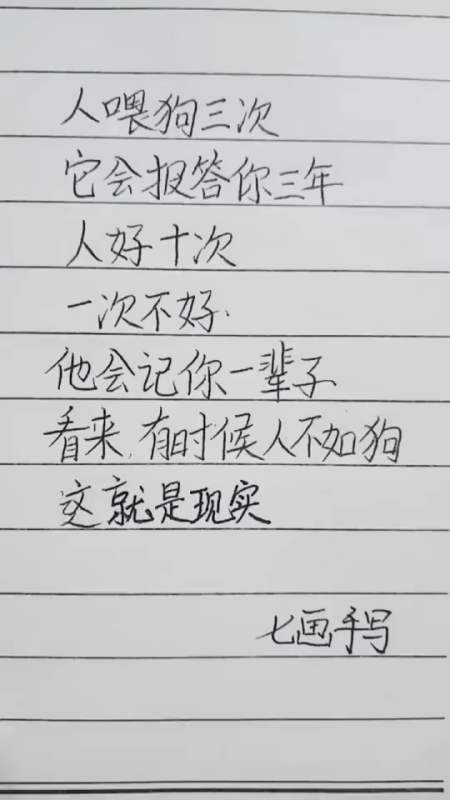 人喂狗三次
它会报答你三年
人好十次
一次不好.
他会记你一辈子
看来,有时候人不如狗
这就是现实
七画手写